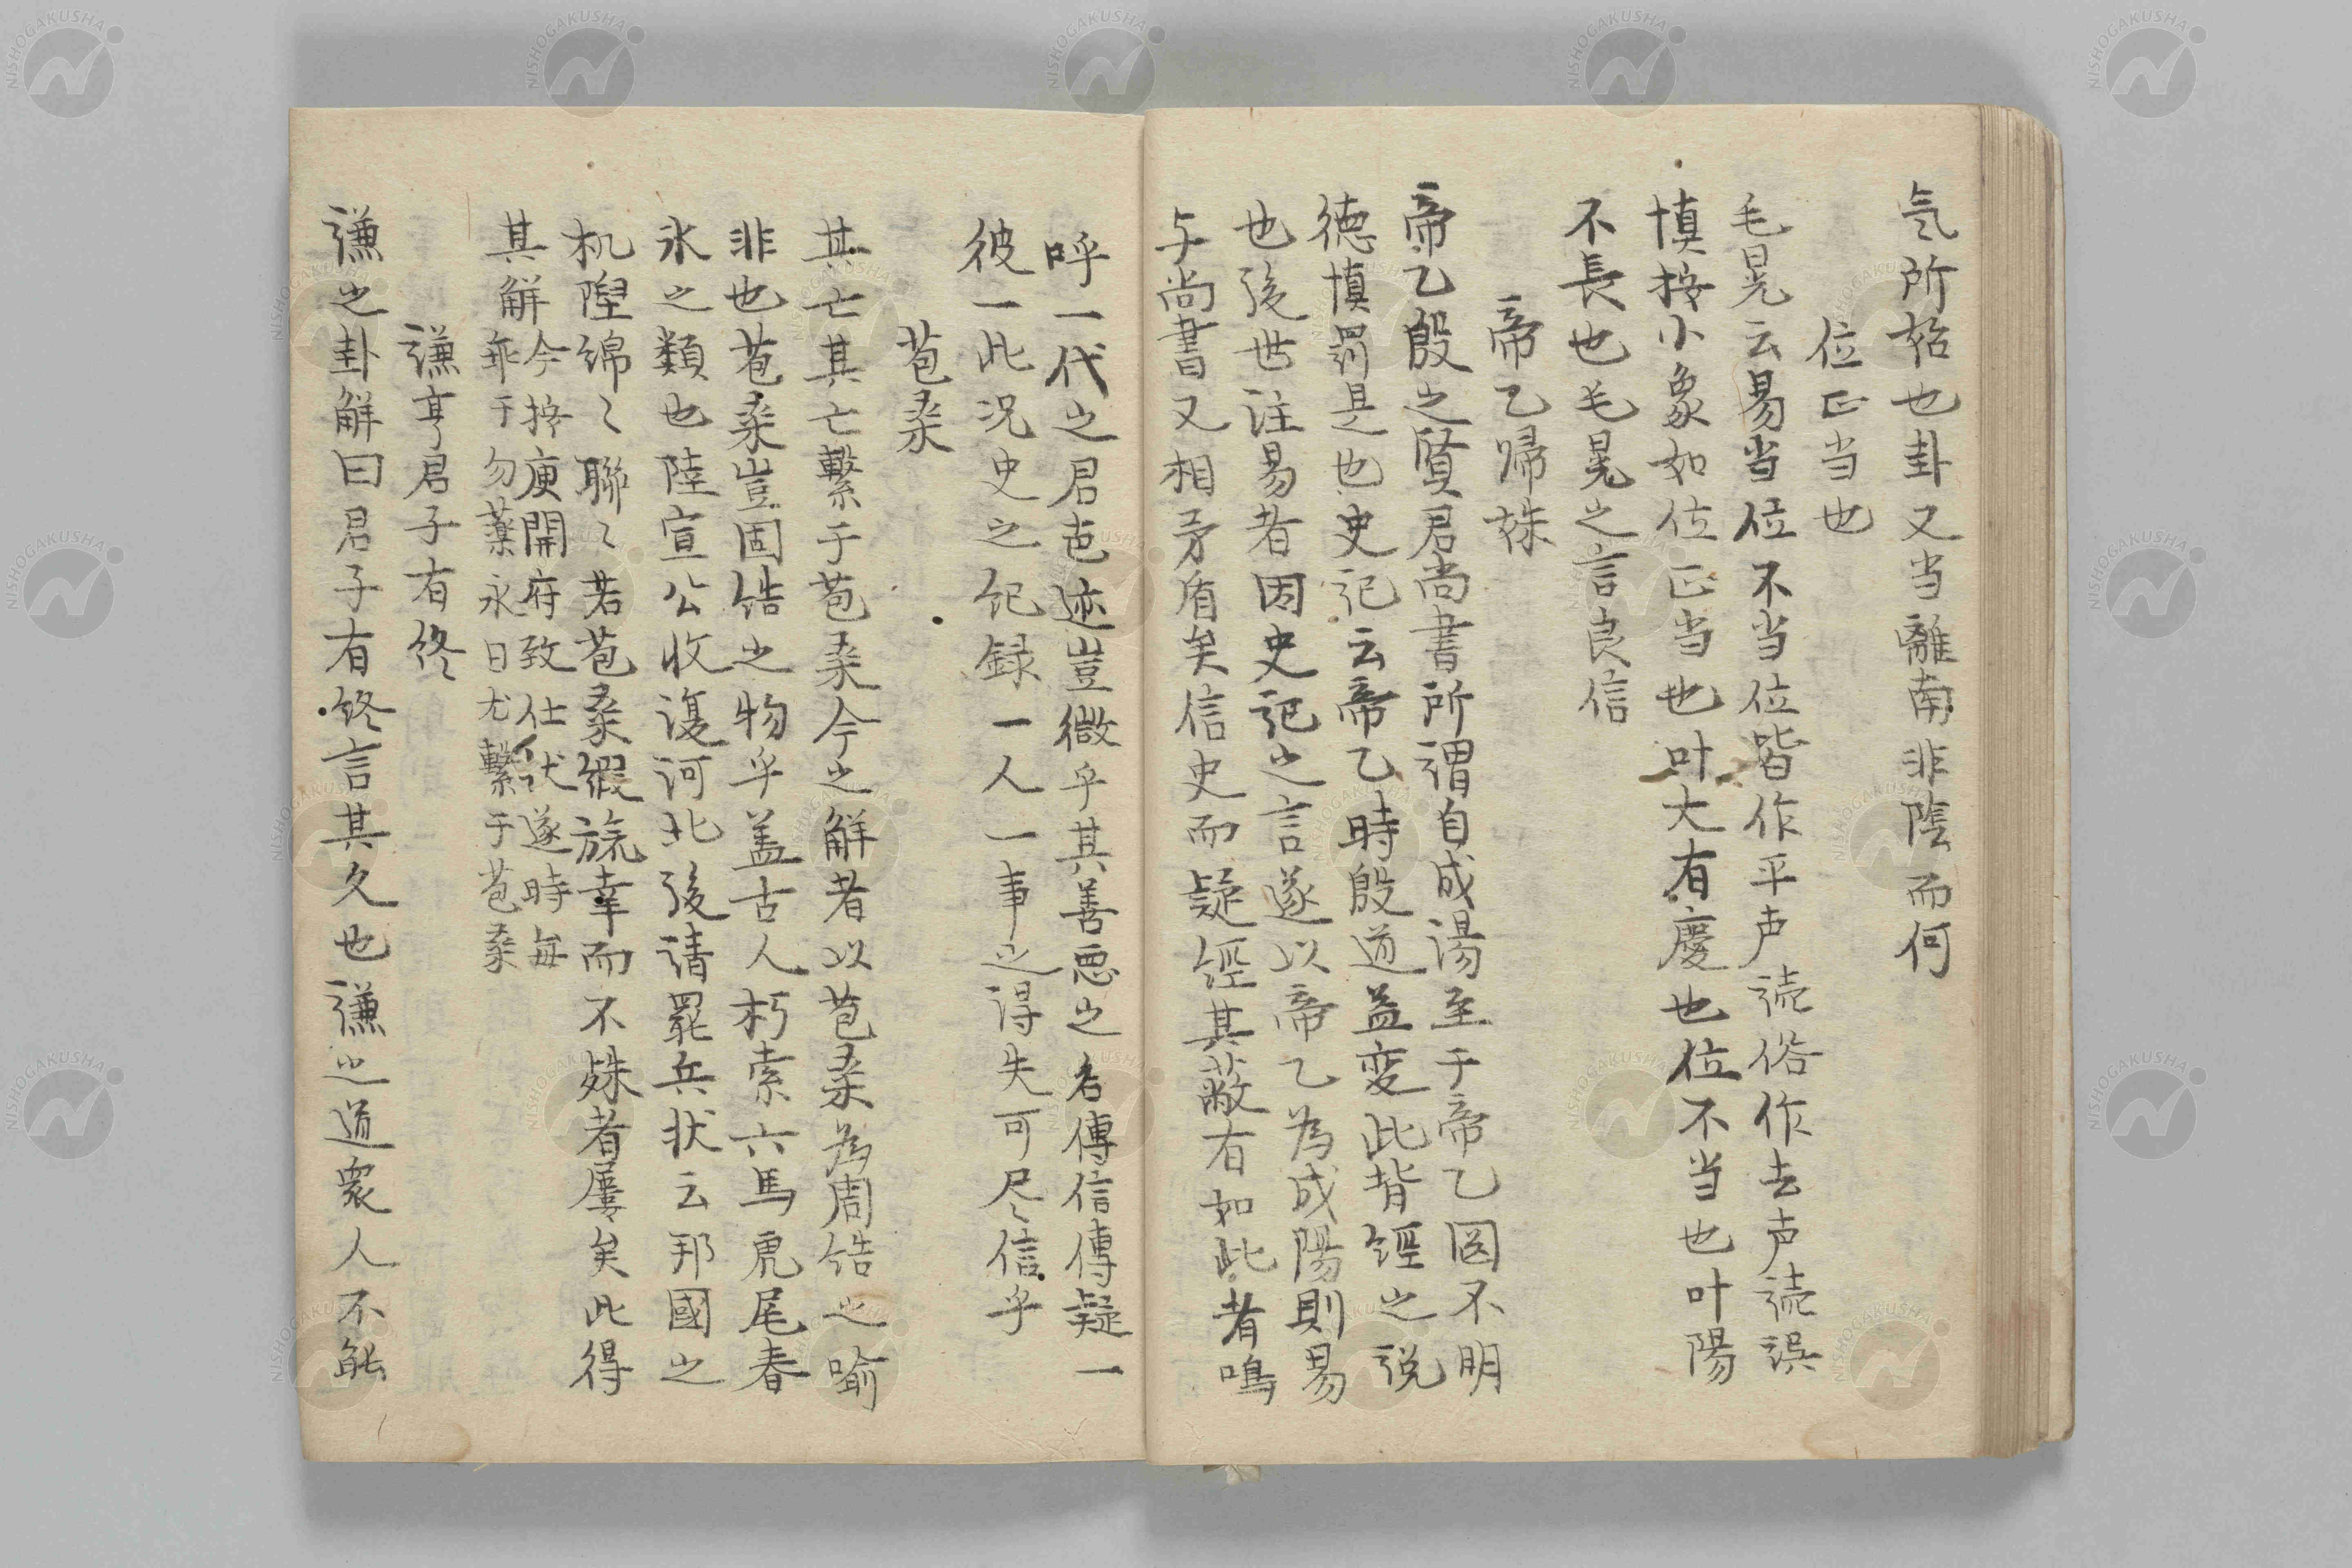 気所始也卦又当離南非陰而何
位正当也
毛晃云易当位不当位皆作平声読俗作去声読誤
慎按小象如位正当也叶大有慶也位不当也叶陽
不長也毛晃之言良信
帝乙帰妹
帝乙殷之賢君尚書所謂自成湯至于帝乙罔不明
徳慎罰是也史記云帝乙時殷道益変此背経之説
也後世注易者因史記之言遂以帝乙為成陽則易
与尚書又相矛盾矣信史而疑経其蔽有如此者嗚
呼一代之君芭迹豈微乎其善悪之名傳信傳疑一
彼一此况史之紀録一人一事之得失可尽信乎
苞桑
其亡其亡繋于苞桑今之觧者以苞桑為周誥之喻
非也苞桑豈固誥之物乎盖古人朽索六馬虎尾春
氷之類也陸宣公收復河北後請罷兵状云邦國之
杌隉綿〻聯〻若苞桑綴旒幸而不殊者屢矣此得
其觧
今按庾開府致仕状遂時每
乖于勿藥永日尤繋于苞桑
謙亨君子有終
謙之卦觧曰君子有終言其久也謙之道衆人不能
NISHOGAKUSHA